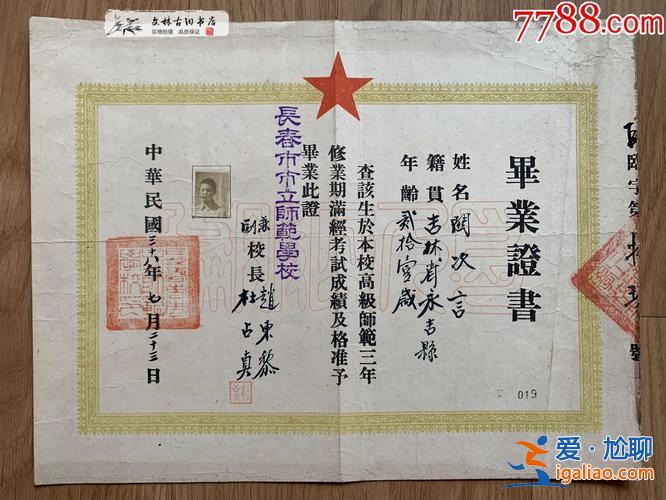 文林古旧书店
实物拍摄 品质保证
7788.com
畢業證書
姓名關次言
籍貫吉林省永吉縣
年齡貳拾壹歲
查該生於本校高級師範三年
修業期滿經考試成績及格准予
畢業此證
長春市市立師範學校
兼校長趙東黎
副校長杜占真
中華民國三十八年七月二十三日
臨字第
號
019
爱·尬聊
igaliao.com